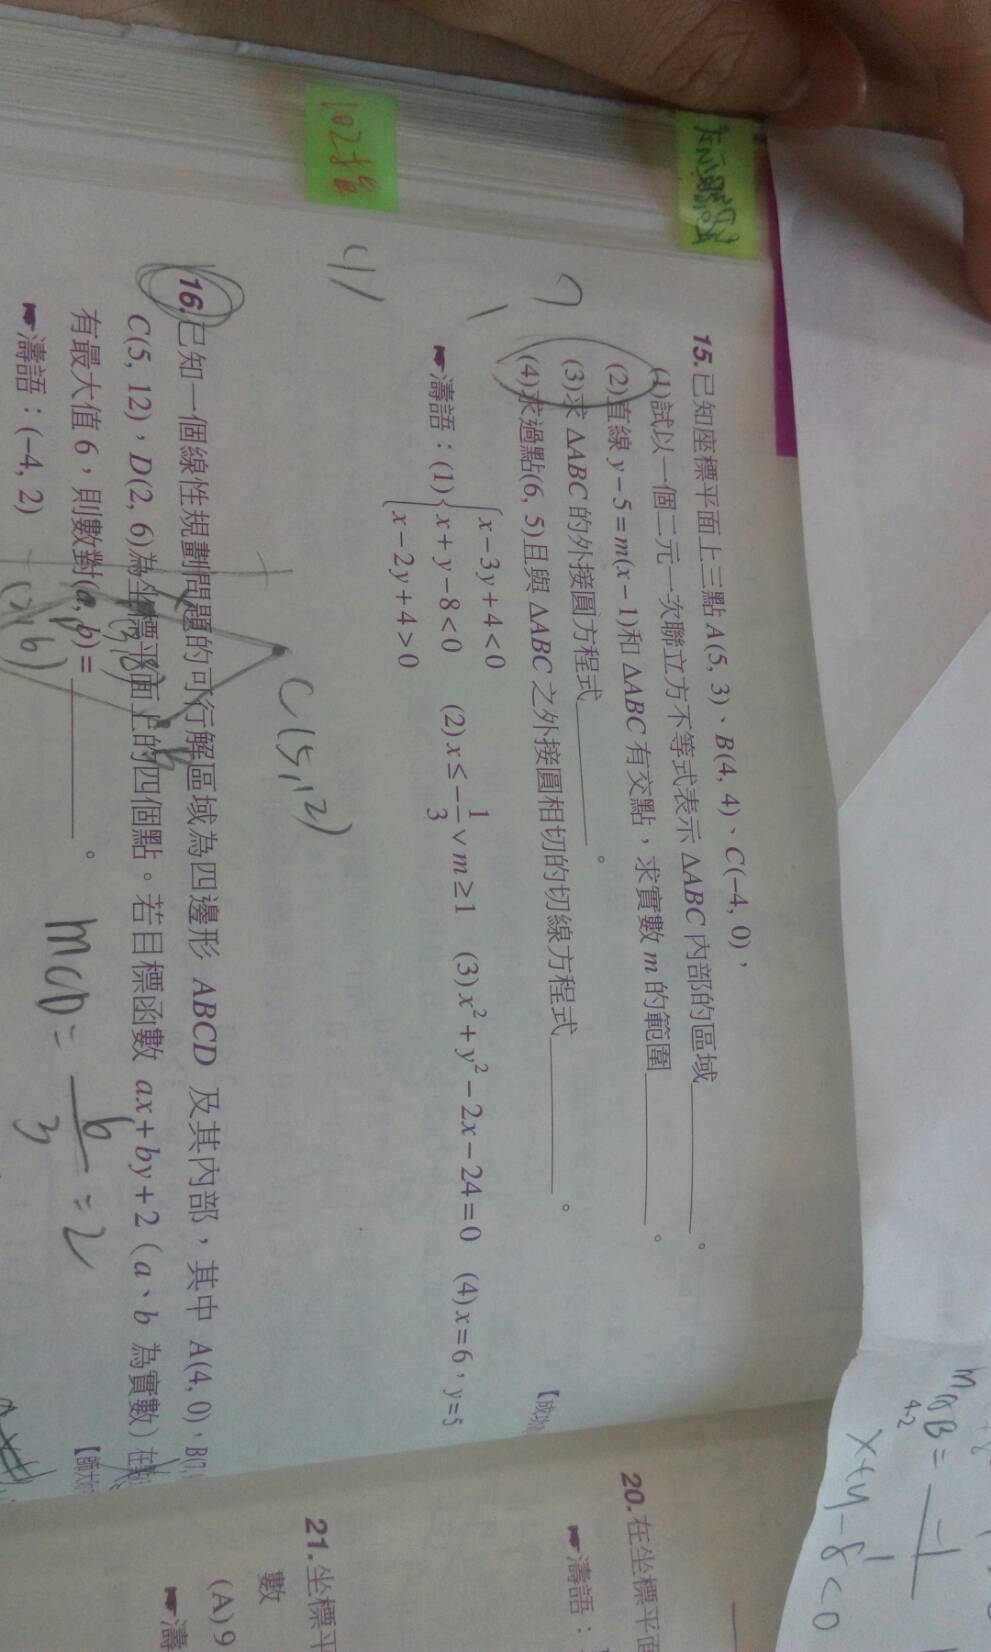 102指考
15.已知座標平面上三點 A(5, 3)、B(4, 4)、C(−4, 0)，
(1)試以一個二元一次聯立方不等式表示 ΔABC 內部的區域________。
(2)直線 y−5=m(x−1)和 ΔABC 有交點，求實數 m 的範圍________。
(3)求 ΔABC 的外接圓方程式________。
(4)求過點(6, 5)且與 ΔABC 之外接圓相切的切線方程式________。
☛濤語：(1){x−3y+4<0
x+y−8<0
x−2y+4>0
(2) x≤−1/3 ∨ m≥1 (3) x²+y²−2x−24=0 (4) x=6，y=5
C(5,12)
16.已知一個線性規劃問題的可行解區域為四邊形 ABCD 及其內部，其中 A(4, 0)，B(7,
C(5, 12)，D(2, 6)為坐標平面上的四個點。若目標函數 ax+by+2（a、b 為實數）在
有最大值 6，則數對(a, b)=________。
☛濤語：(−4, 2)
mCD = 6/3 = 2
20.在坐標平面
☛濤語：
21.坐標平
數
(A) 9
☛濤
x+y−8<0